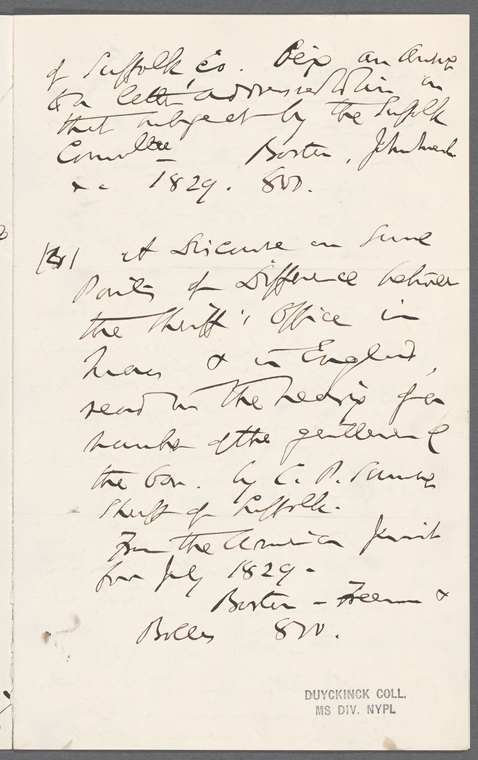 of Suffolk Co. Being an answer
to a letter addressed to him on
that subject by the Suffolk
Committee Boston, John
&c 1829. 8vo.
A Discourse on Some
Points of Difference between
the Sheriff's Office in
Mass & in England,
read in the hearing of a
number of the gentlemen of
the bar. by C. P. Sumner
Sheriff of Suffolk.
From the American Jurist
for July 1829 -
Boston - Freeman &
Bolles 8vo.
DUYCKINCK COLL.
MS DIV. NYPL